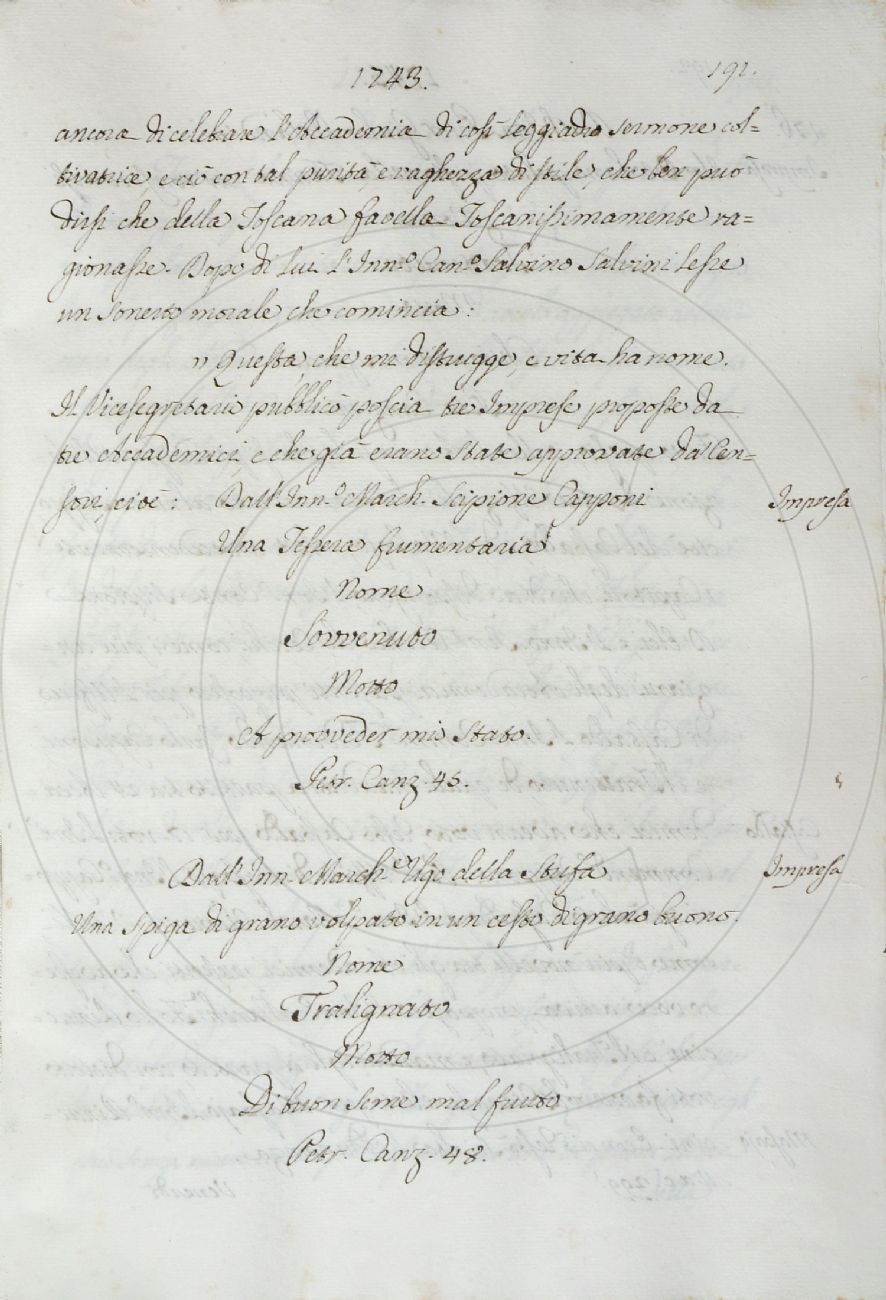 1743.
191.
ancora di celebrare l'Accademia di così leggiadro sermone col=
tivatrice, e ciò con tal purità, e vaghezza di stile, che ben può
dirsi che della Toscana favella Toscanissimamente ra=
gionasse. Dopo di Lui l'Inn.º Can.º Salvino Salvini lesse
un sonetto morale, che comincia:
" Questa, che mi distrugge, e vita ha nome.
Il Vicesegretario pubblicò poscia tre Imprese proposte da
tre Accademici, e che già erano state approvate da' Cen=
sori, cioè: Dall'Inn.º March. Scipione Capponi
Impresa
Una Tessera frumentaria
Nome
Sovvenuto
Motto
A provveder mio stato.
Petr. Canz. 45.
Dall'Inn. March.e Ugo della Stufa
Impresa
Una spiga di grano volpato in un cesto di grano buono.
Nome
Tralignato
Motto
Di buon seme mal frutto
Petr. Canz. 48.